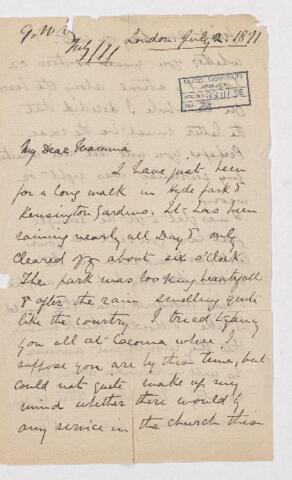 London July 2. 1871
My Dear Mamma
I have just been
for a long walk in Hyde park &
Kensington Gardens. It has been
raining nearly all Day & only
cleared off about six o'clock.
The park was looking beautifull
& after the rain smelling quite
like the country. I tried to fancy
you all at Cacouna where I
suppose you are by this time, but
could not quite make up my
mind whether there would be
any service in the church this